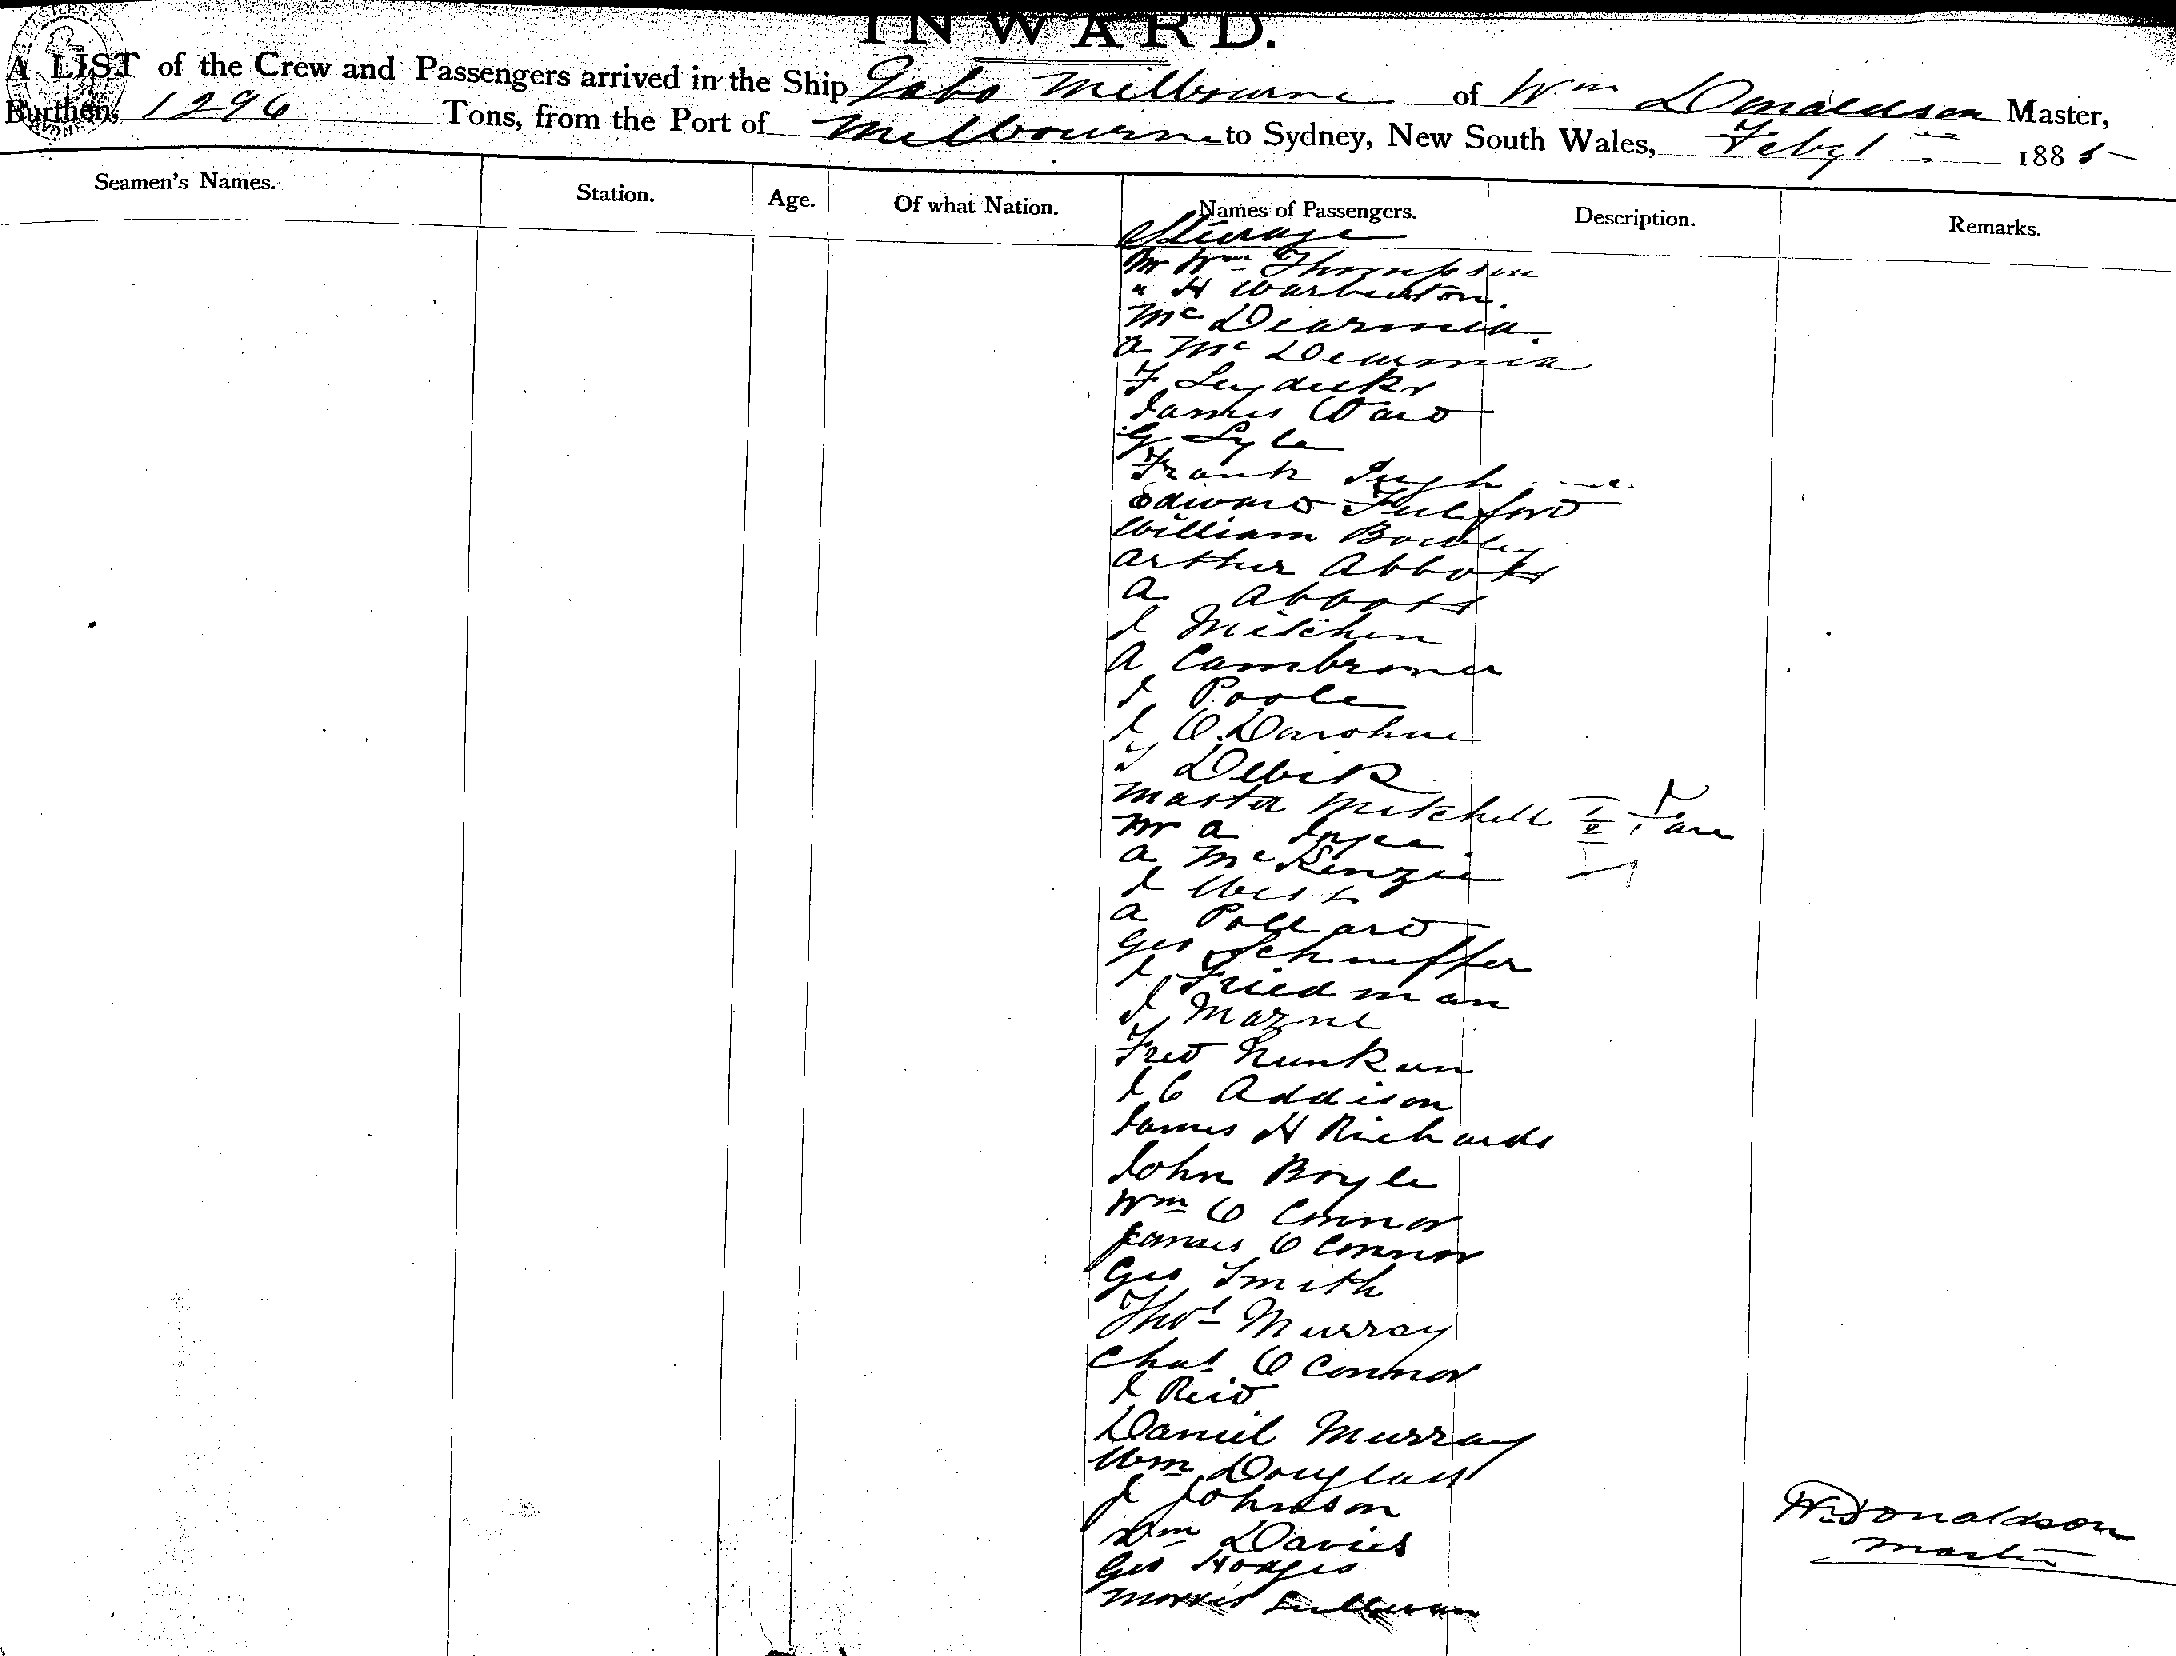 INWARD.
A LIST of the Crew and Passengers arrived in the Ship Gabo Melbourne of Wm Donaldson Master,
Burthen, 1296 Tons, from the Port of Melbourne to Sydney, New South Wales, Feby 1 1885
Seamen's Names. Station. Age. Of what Nation. Names of Passengers. Description. Remarks.
Steerage
Mr Wm Thompson
" H Warburton.
Mc
A Mc
F
James Ward
G Lyle
Frank
Edward Fulford
William
Arthur Abbott
A Abbott
J
A
J Poole
J O.Donohue
Master Mitchell 1/2 Fare
Mr A
A McKenzie
J West
A Pollard
Geo
J Friedman
J
Fred
J C Addison
James H Richards
John Boyle
Wm O Connor
James O Connor
Geo Smith
Thos Murray
Chas O Connor
J Reid
Daniel Murray
Wm Douglass
J Johnson
Wm Davies
Geo Hodges
Morris Sullivan
W. Donaldson
Master